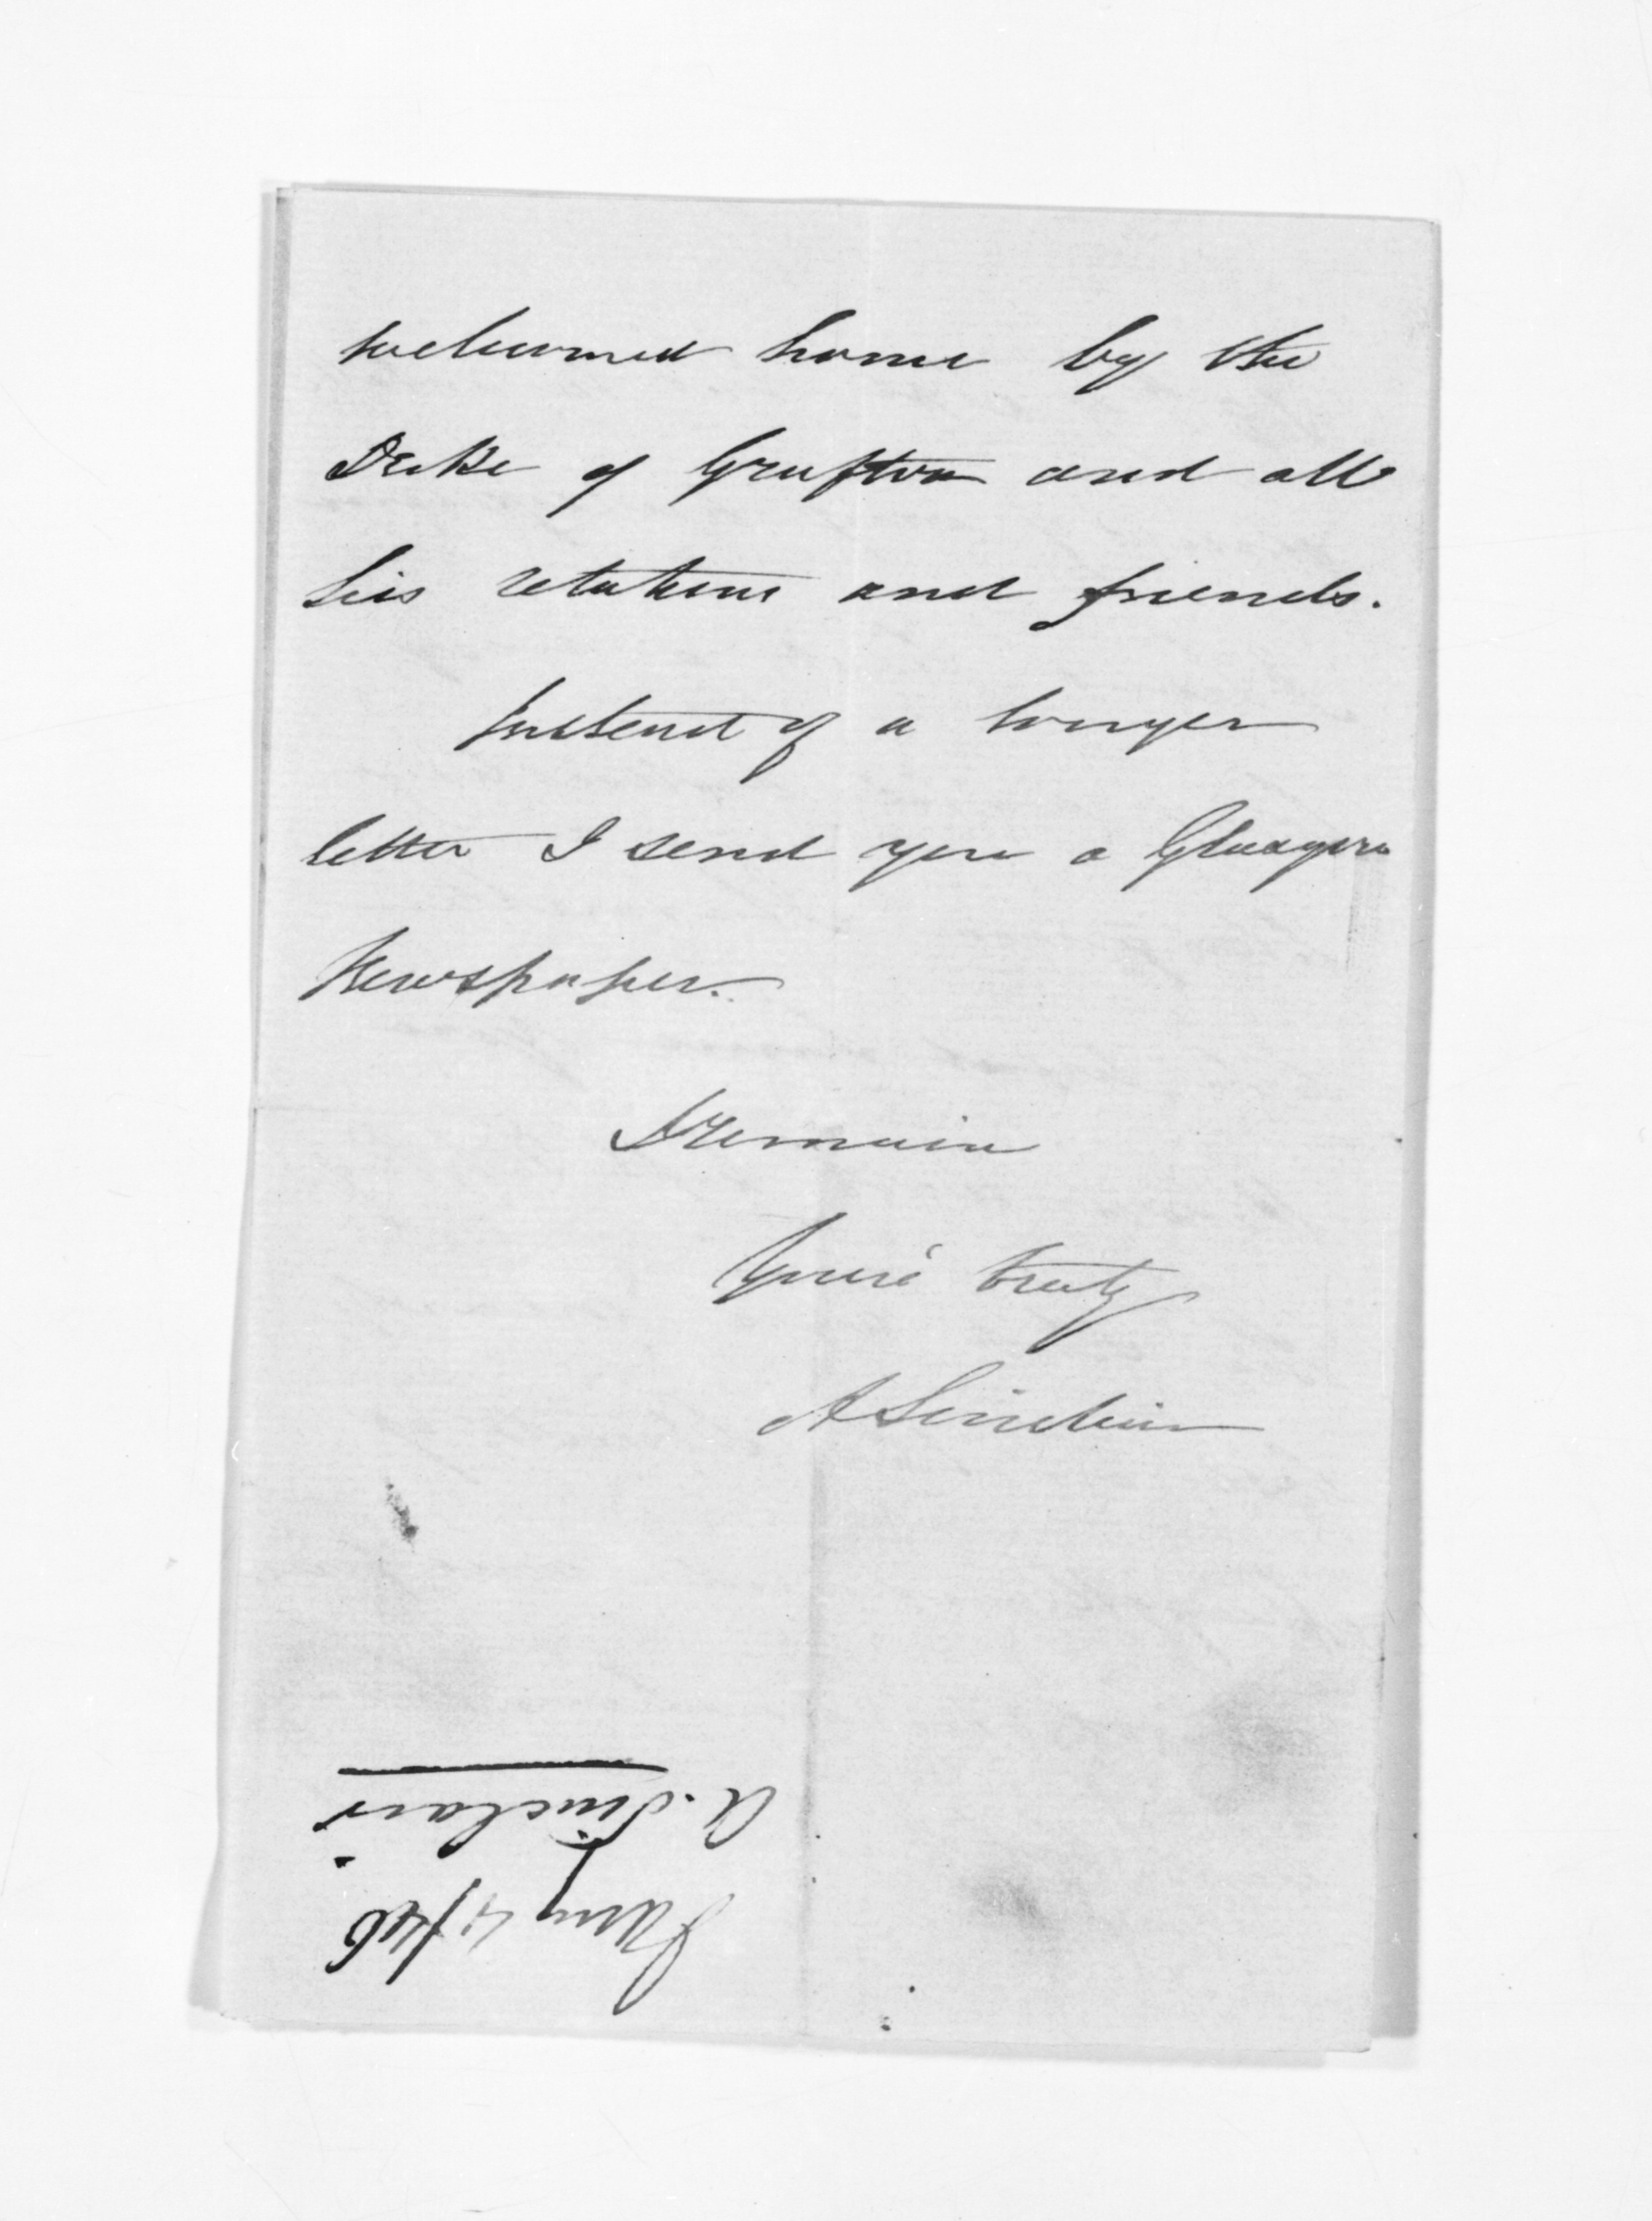 welcomed home by the
Duke of Grafton and all
his relations and friends.
Instead of a longer
letter I send you a Glasgow
Newspaper.
I remain
Yours truly
A Sinclair
Jany 4/46
A. Sinclair